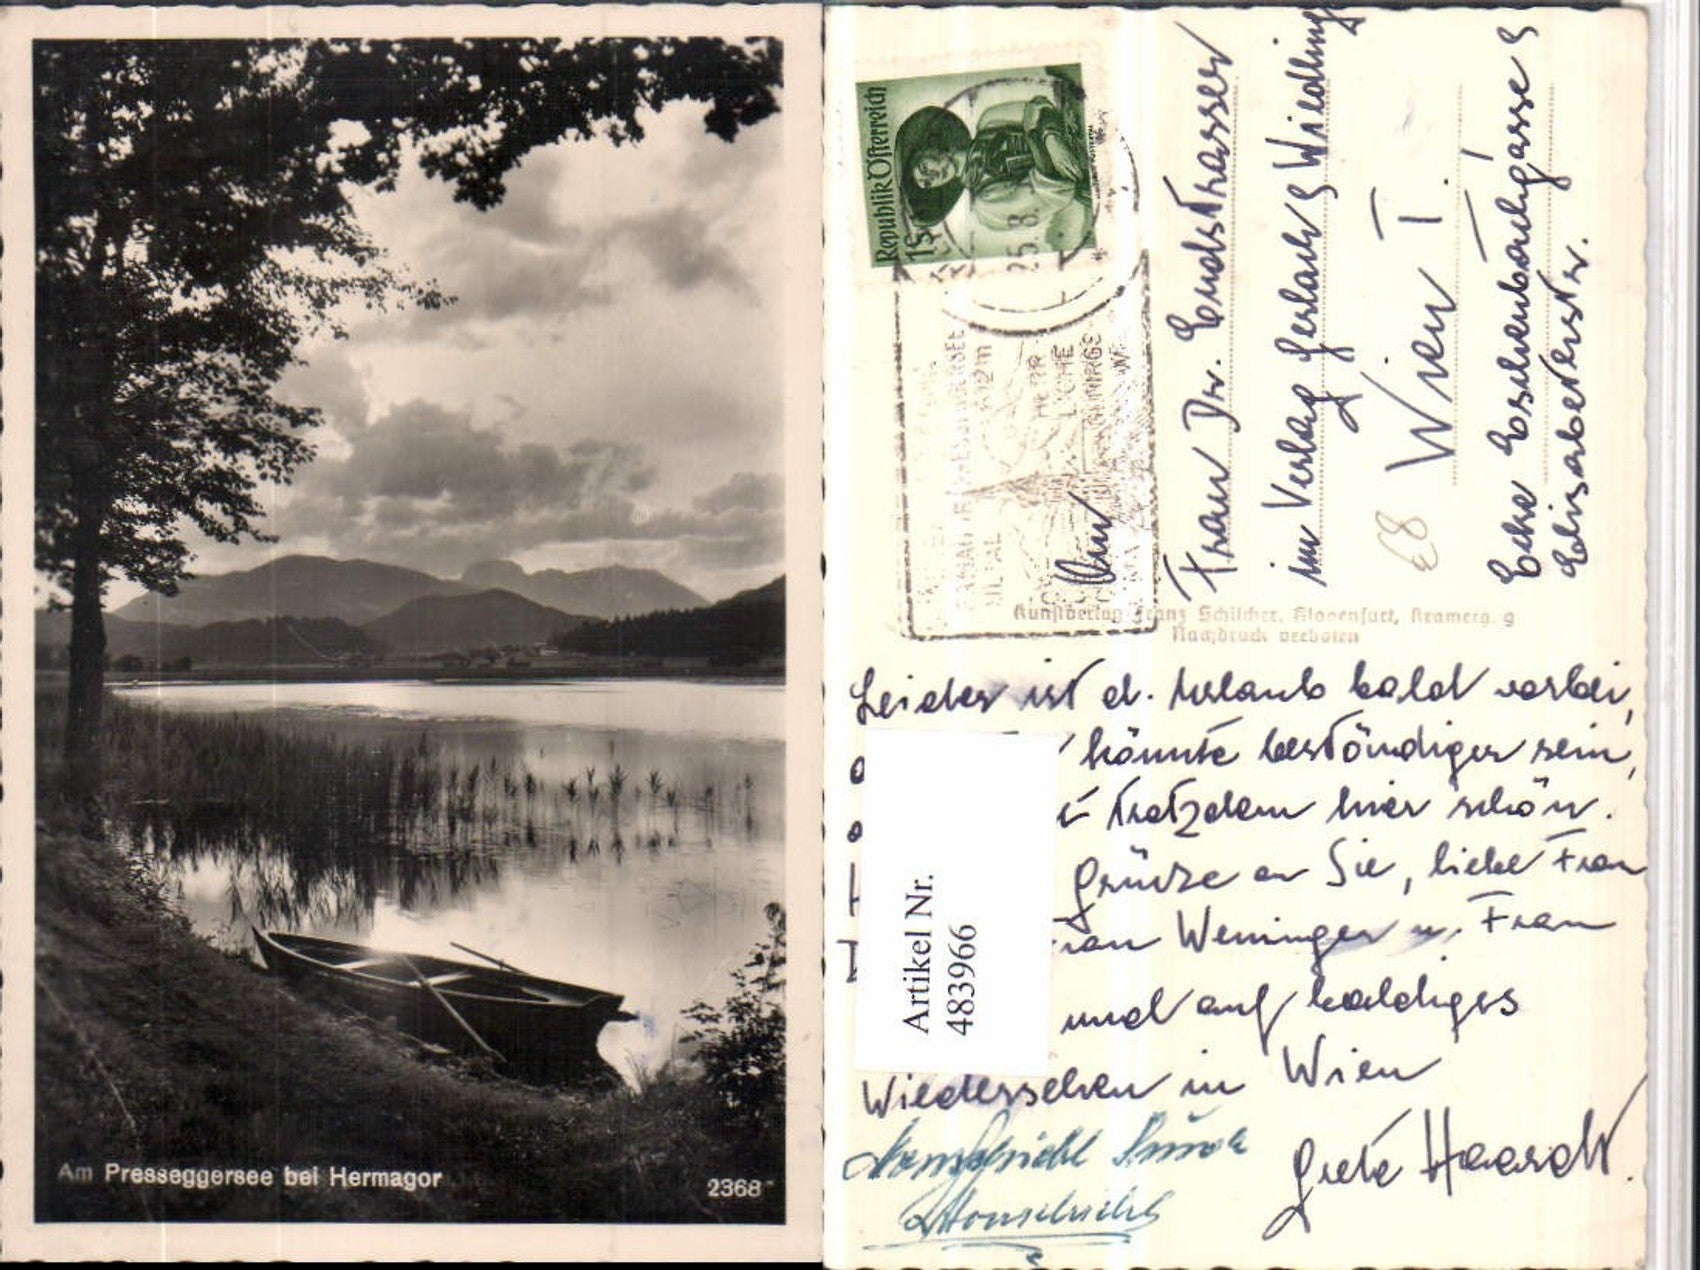 Am Presseggersee bei Hermagor
2368
Republik Österreich
1S
25.8.
Frau Dr. Ernst Strasser
im Verlag Gerlach & Wiedling
Wien I.
Ecke Eschenbachgasse 9
Elisabethstr.
Kunstverlag Franz Schilcher, Klagenfurt, Kramerg. 9
Nachdruck verboten
Artikel Nr.
483966
Leider ist d. Urlaub bald vorbei,
könnte beständiger sein,
trotzdem hier schön.
Grüsze an Sie, liebe Frau
Frau Weninger u. Frau
und auf baldiges
Wiedersehen in Wien
Grete Haardt.